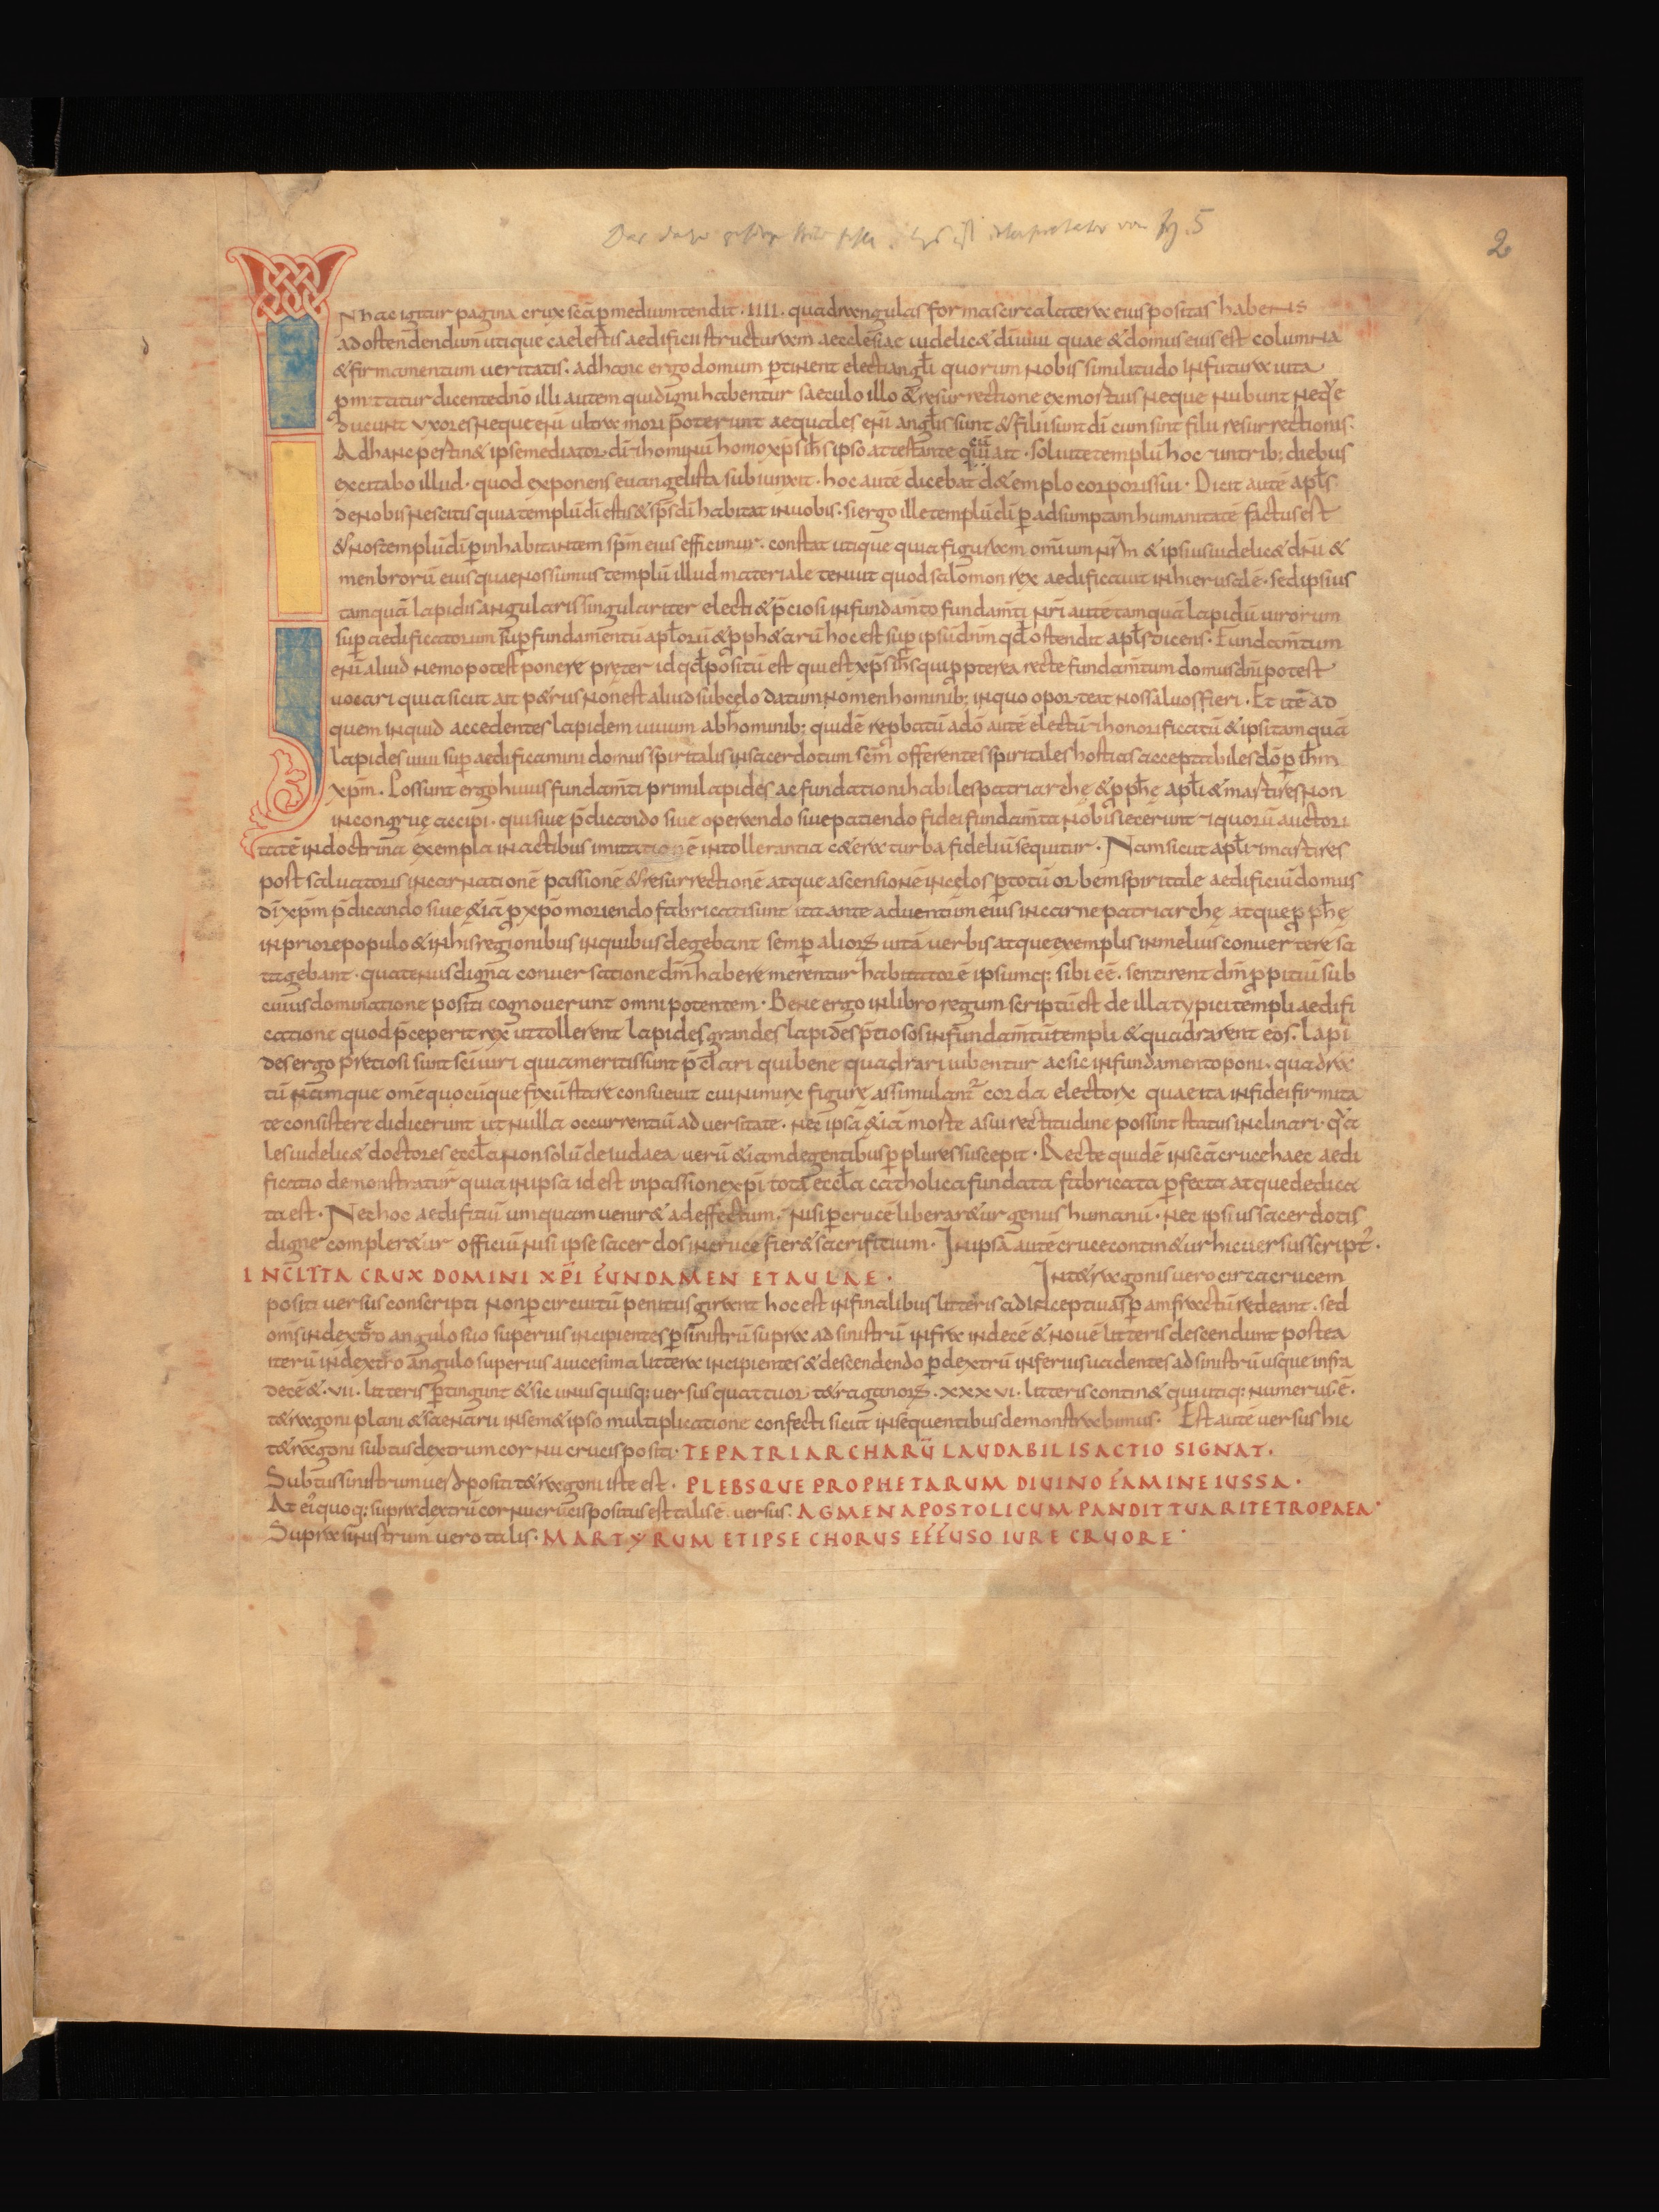 fig. 5
2
IN hac igitur pagina crux scā p̄ medium tendit · IIII · quadrangulas formas circa latera eius positas habens
ad ostendendum utique caelestis aedificii structuram aecclesiae uidelic& diuini quae & domus eius est columna
& firmamentum ueritatis · ad hanc ergo domum p̄tinent electi angłi quorum nobis similitudo in futura uita
p̄mittitur dicente dn̄o illi autem qui digni habentur saeculo illo & resurrectione ex mortuis neque nubunt neq̄e
ducunt uxores neque eni ultra mori p̄oterunt aequales eni angłis sunt & filii sunt dī cum sint filii resurrectionis ·
Ad hanc pertin& ipse mediator dī & hominū homo xp̄s ih̄s ipso attestante qui ait · soluite templū hoc & in trib; diebus
excitabo illud · quod exponens euangelista subiunxit · hoc autē dicebat de templo corporis sui · Dicit autē apłs
de nobis nescitis quia templū dī estis & sp̄s dī habitat in uobis · si ergo ille templū dī p̄ adsumptam humanitatē factus est
& nos templū dī p̄ inhabitantem sp̄m eius efficimur · constat utique quia figuram omium nr̄m & ipsius uidelic& dn̄i &
menbrorū eius quae nos sumus templū illud materiale tenuit quod salomon rex aedificauit in hierusalē · sed ipsius
tamquā lapidis angularis singulariter electi & p̄ciosi in fundam̄to fundam̄ti nr̄i autē tamquā lapidū uirorum
sup̄aedificatorum sup̄ fundamentū apłorū & p̄ph&arū hoc est sup̄ ipsū dn̄m qđ ostendit apłs dicens · Fundam̄tum
eni aliud nemo potest ponere pr&er id qđ positū est qui est xp̄s ih̄s qui p̄pterea recte fundam̄tum domus dn̄i potest
uocari quia sicut ait p&rus non est aliud sub cęlo datum nomen hominib; in quo oporteat nos saluos fieri · Et itē ad
quem inquid accedentes lapidem uiuum ab hominib; quidē rep̄batū a dō autē electū & honorificatū & ipsi tamquā
lapides uiui sup̄aedificamini domus spiritalis in sacerdotium scm̄ offerentes spiritales hostias acceptabiles dō p̄ ih̄m
xp̄m · Possunt ergo huius fundam̄ti primi lapides ac fundationi habiles patriarchę & p̄ph̄ę apłi & martires non
incongruę accipi · qui siue p̄dicando siue operando siue patiendo fidei fundam̄ta nobis iecerunt & quorū auctori
tatē in doctrina exempla in actibus imitationē in tollerantia c&era turba fideliū sequitur · Nam sicut apłi & martires
post saluatoris incarnationē passionē & resurrectionē atque ascensionē in cęlos p̄ totū orbem spiritale aedificiū domus
dī xp̄m p̄dicando siue &iā p̄ xp̄o moriendo fabricati sunt ita ante aduentum eius in carne patriarchę atque p̄ph̄ę
in priore populo & in his regionibus in quibus degebant semp̄ aliorū uitā uerbis atque exemplis in melius conuertere sa
tagebant · quatenus digna conuersatione dn̄m habere merentur habitatorē ipsumq; sibi eē · sentirent dn̄m p̄pitiū sub
cuius dominatione positi cognouerunt omnipotentem · Bene ergo in libro regum scriptū est de illa typici templi aedifi
catione quod p̄ceperit rex ut tollerent lapides grandes lapides p̄tiosos in fundam̄tū templi & quadrarent eos · Lapi
des ergo pretiosi sunt sci uiri qui a meritis sunt p̄clari qui bene quadrari iubentur ac sic in fundamento poni · quadra
tū namque omē quocūque fixū stare consueuit cui nimirū figurę assimulant̄ corda electorū quae ita in fidei firmita
te consistere didicerunt ut nulla occurrentiū aduersitate · nec ipsā &iā morte a sui rectitudine possint status inclinari · q̄a
les uidelic& doctores eccła non solū de iudaea uerū &iam de gentibus p̄plures suscepit · Recte quidē in scā cruce haec aedi
ficatio demonstratur quia in ipsa id est in passione xp̄i tota eccła catholica fundata fabricata p̄fecta atque dedica
ta est · Nec hoc aedifitiū umquam uenir& ad effectum · nisi p̄ crucē liberar&ur genus humanū · nec ipsius sacerdotis
digne complер&ur officiū nisi ipse sacerdos in cruce fier& sacrifitium · In ipsā autē cruce contin&ur hic uersus script̄ ·
INCLITA CRUX DOMINI XP̄I FUNDAMEN ET AULAE · In t&ragonis uero circa crucem
positi uersus conscripti non p̄ circuitū penitus girant hoc est in finalibus litteris ad inceptiuas p̄ amfractū redeant · sed
om̄s in dextro angulo suo superius incipientes p̄ sinistrū supra ad sinistrū infra in decē & nouē litteris descendunt postea
iterū in dextro angulo superius a uicesima littera incipientes & descendendo p̄ dextrū inferius uadentes ad sinistrū usque infra
decē & · VII · litteris p̄tingunt & sic unusquisq; uersus quattuor t&ragonorū · XXXVI · litteris contin& qui utiq; numerus · ē ·
t&ragoni plani & saenarii in sem&ipso multiplicatione confecti sicut in sequentibus demonstrabimus · Est autē uersus hic
t&ragoni subtus dextrum cornu crucis positi · TE PATRIARCHARŪ LAUDABILIS ACTIO SIGNAT ·
Subtus sinistrum uero positi t&ragoni iste est · PLEBSQUE PROPHETARUM DIUINO FAMINE IUSSA ·
At ei quoq; supra dextrū cornu crucis positus est talis ē uersus · AGMEN APOSTOLICUM PANDIT TUA RITE TROPAEA ·
Supra sinistrum uero talis · MARTYRUM ET IPSE CHORUS EFFUSO IURE CRUORE ·